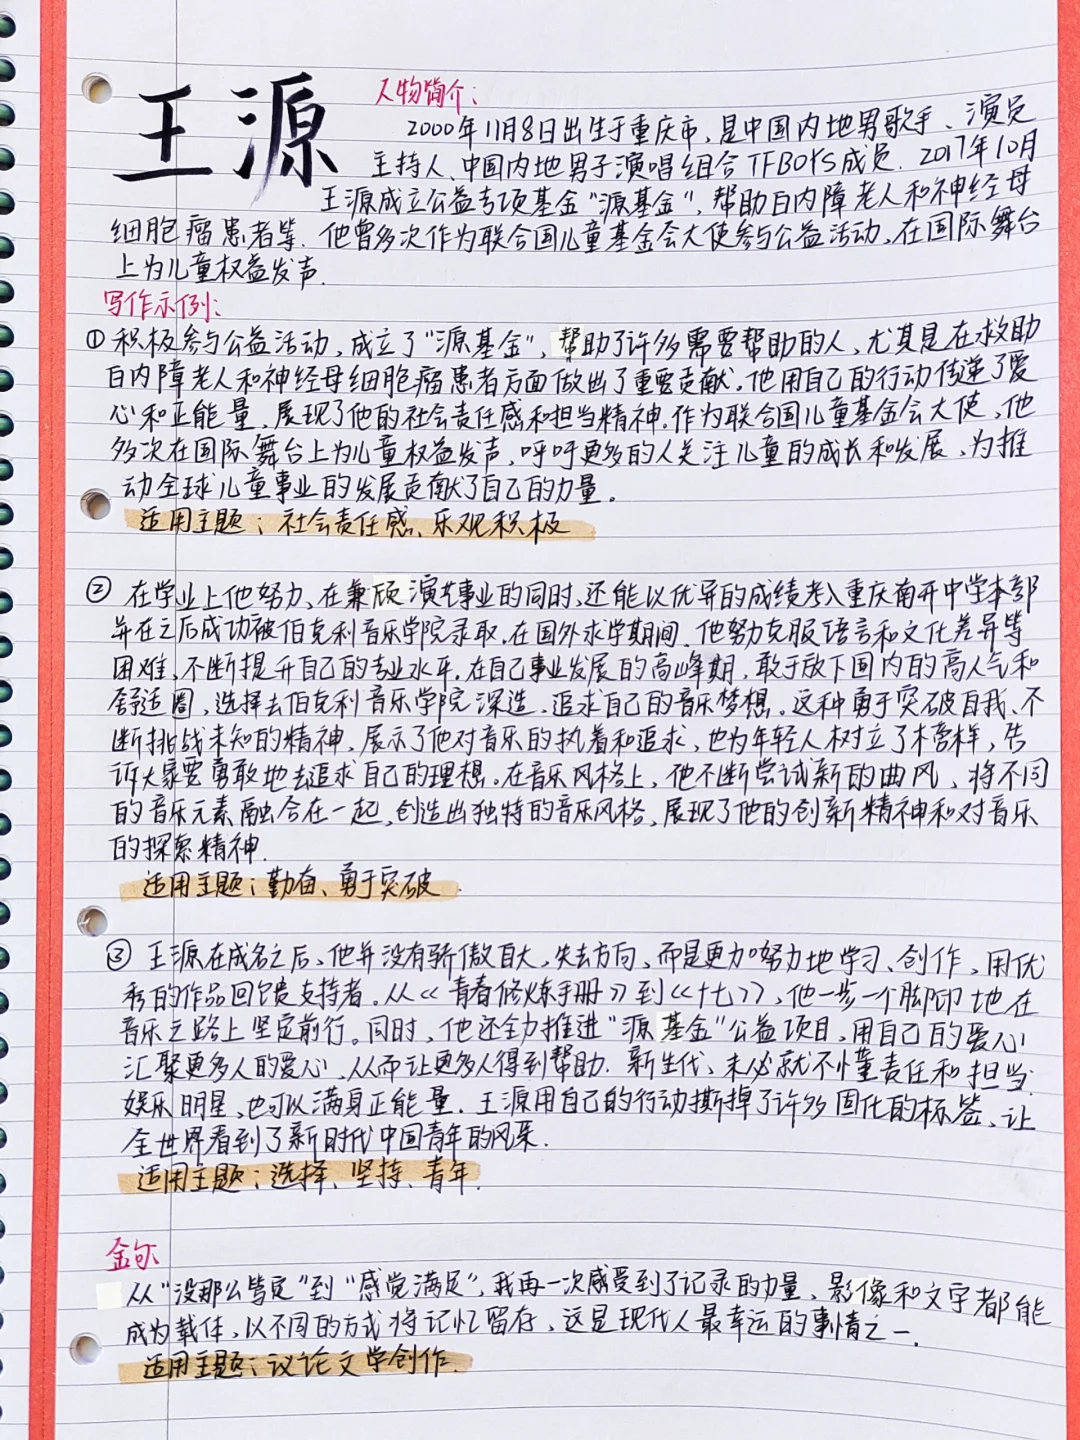 王源
人物简介：
2000年11月8日出生于重庆市，是中国内地男歌手、演员
主持人、中国内地男子演唱组合TFBOYS成员．2017年10月
王源成立公益专项基金“源基金”，帮助白内障老人和神经母
细胞瘤患者等．他曾多次作为联合国儿童基金会大使参与公益活动，在国际舞台
上为儿童权益发声．
写作示例：
①积极参与公益活动，成立了“源基金”，帮助了许多需要帮助的人，尤其是在救助
白内障老人和神经母细胞瘤患者方面做出了重要贡献．他用自己的行动传递了爱
心和正能量，展现了他的社会责任感和担当精神．作为联合国儿童基金会大使，他
多次在国际舞台上为儿童权益发声，呼吁更多的人关注儿童的成长和发展，为推
动全球儿童事业的发展贡献了自己的力量。
适用主题：社会责任感、乐观积极
②在学业上他努力，在兼顾演艺事业的同时，还能以优异的成绩考入重庆南开中学本部
并在之后成功被伯克利音乐学院录取．在国外求学期间，他努力克服语言和文化差异等
困难，不断提升自己的专业水平．在自己事业发展的高峰期，敢于放下国内的高人气和
舒适圈，选择去伯克利音乐学院深造，追求自己的音乐梦想。这种勇于突破自我、不
断挑战未知的精神，展示了他对音乐的执着和追求，也为年轻人树立了榜样，告
诉大家要勇敢地去追求自己的理想。在音乐风格上，他不断尝试新的曲风，将不同
的音乐元素融合在一起，创造出独特的音乐风格，展现了他的创新精神和对音乐
的探索精神．
适用主题：勤奋、勇于突破
③王源在成名之后，他并没有骄傲自大，失去方向，而是更加努力地学习、创作，用优
秀的作品回馈支持者．从《青春修炼手册》到《十七》，他一步一个脚印地在
音乐之路上坚定前行。同时，他还全力推进“源基金”公益项目，用自己的爱心
汇聚更多人的爱心，从而让更多人得到帮助．新生代，未必就不懂责任和担当．
娱乐明星，也可以满身正能量．王源用自己的行动撕掉了许多固化的标签，让
全世界看到了新时代中国青年的风采．
适用主题：选择、坚持、青年．
金句
从“没那么笃定”到“感觉满足”，我再一次感受到了记录的力量，影像和文字都能
成为载体，以不同的方式将记忆留存，这是现代人最幸运的事情之一．
适用主题：议论文学创作．